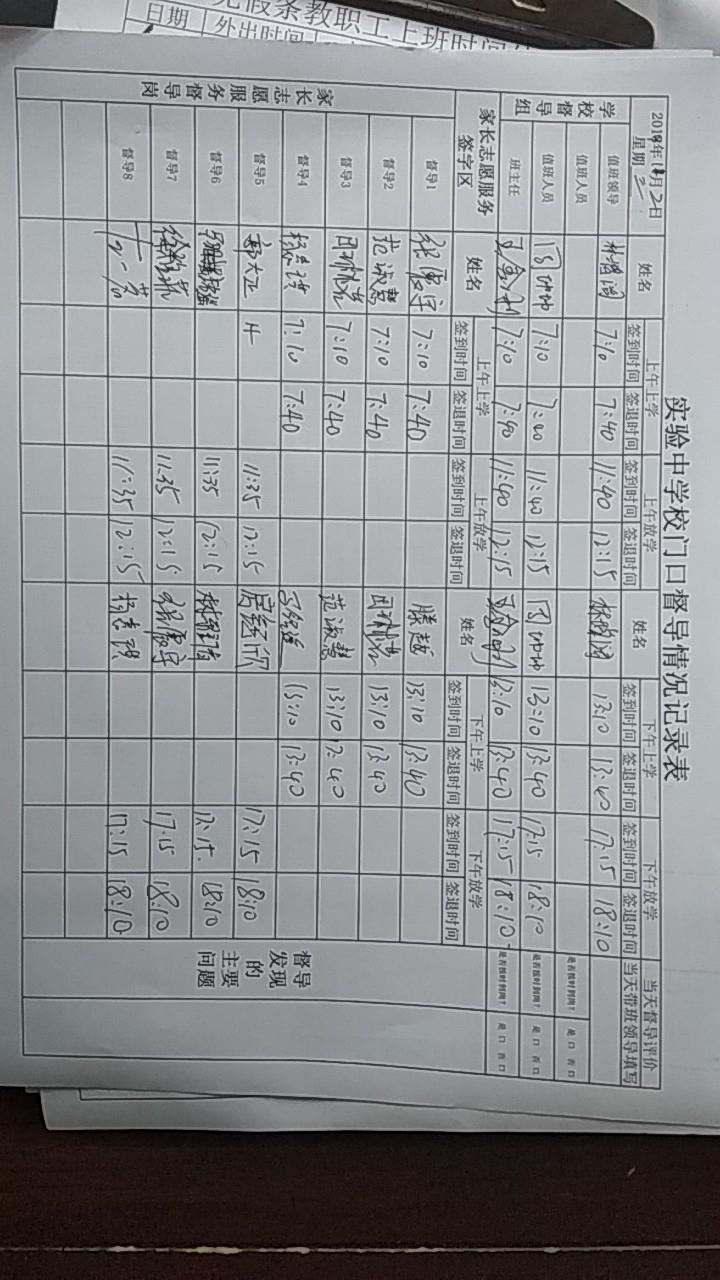 假条教职工上班时间
日期 外出时间
实验中学校门口督导情况记录表
2018年 月2日
星期二
姓名 上午上学 上午放学 姓名 下午上学 下午放学 当天督导评价
签到时间 签退时间 签到时间 签退时间 签到时间 签退时间 签到时间 签退时间 当天带班领导填写
学校督导组
值班领导 7:10 7:40 11:40 12:15 13:10 13:40 17:15 18:10
值班人员 是否按时到岗? 是 口 否 口
值班人员 7:10 7:40 11:40 12:15 13:10 13:40 17:15 18:10 是否按时到岗? 是 口 否 口
班主任 7:10 7:40 11:40 12:15 13:10 13:40 17:15 18:10 是否按时到岗? 是 口 否 口
家长志愿服务签字区 姓名 上午上学 上午放学 姓名 下午上学 下午放学
签到时间 签退时间 签到时间 签退时间 签到时间 签退时间 签到时间 签退时间
家长志愿服务督导岗
督导1 张惠宇 7:10 7:40 滕越 13:10 13:40
督导2 范淑慧 7:10 7:40 13:10 13:40
督导3 7:10 7:40 范淑慧 13:10 13:40
督导4 7:10 7:40 13:10 13:40
督导5 郭大正 11:35 12:15 17:15 18:10
督导6 11:35 12:15 17:15 18:10
督导7 11:35 12:15 17:15 18:10
督导8 11:35 12:15 17:15 18:10
督导发现的主要问题